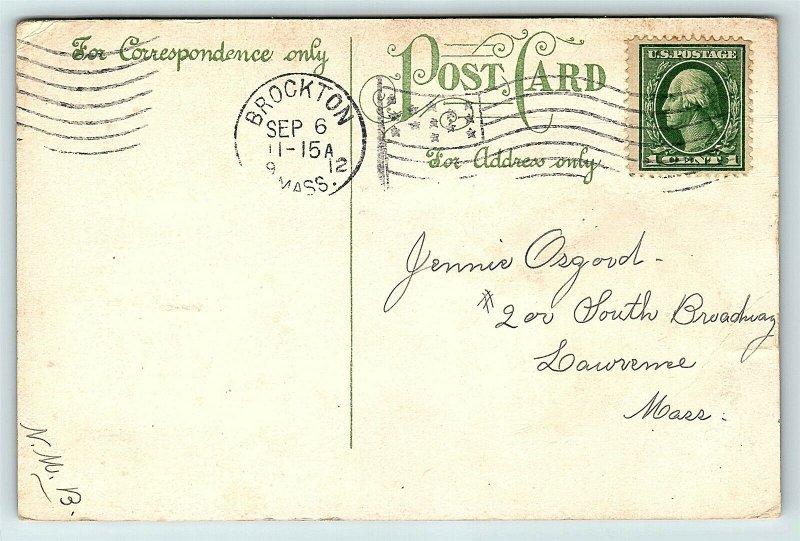 For Correspondence only
POST CARD
For Address only
BROCKTON
SEP 6
11-15A
9 12
MASS.
U.S. POSTAGE
1 CENT 1
Jennie Osgood -
South Broadway
Lawrence
Mass.
N. M. B.